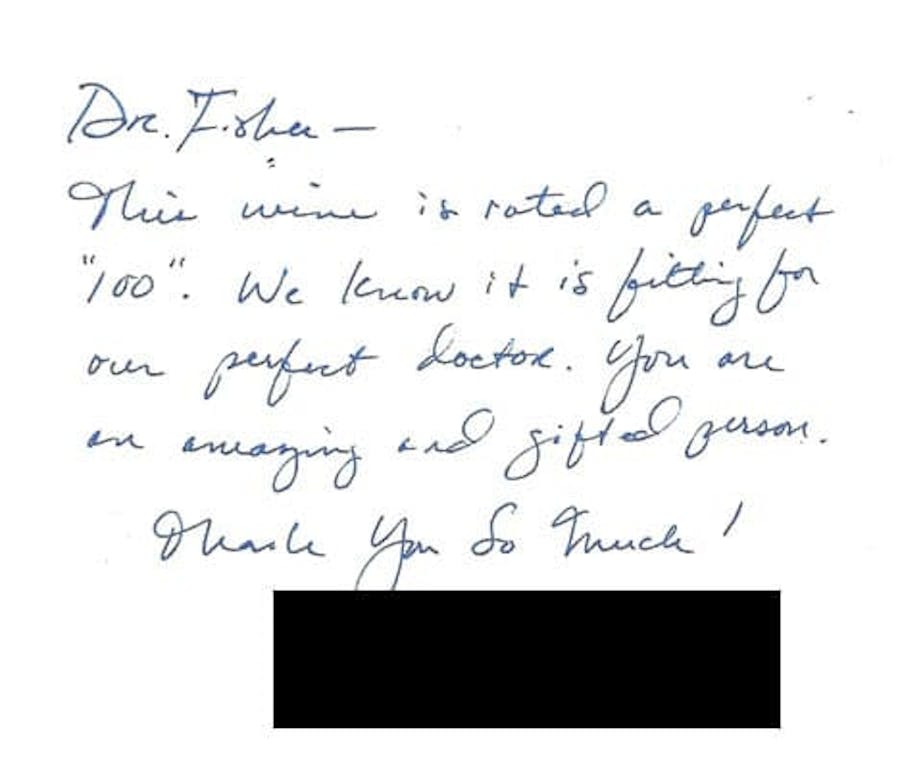 Dr. Fisher —
This wine is rated a perfect
"100". We know it is fitting for
our perfect doctor. You are
an amazing and gifted person.
Thank You So Much!